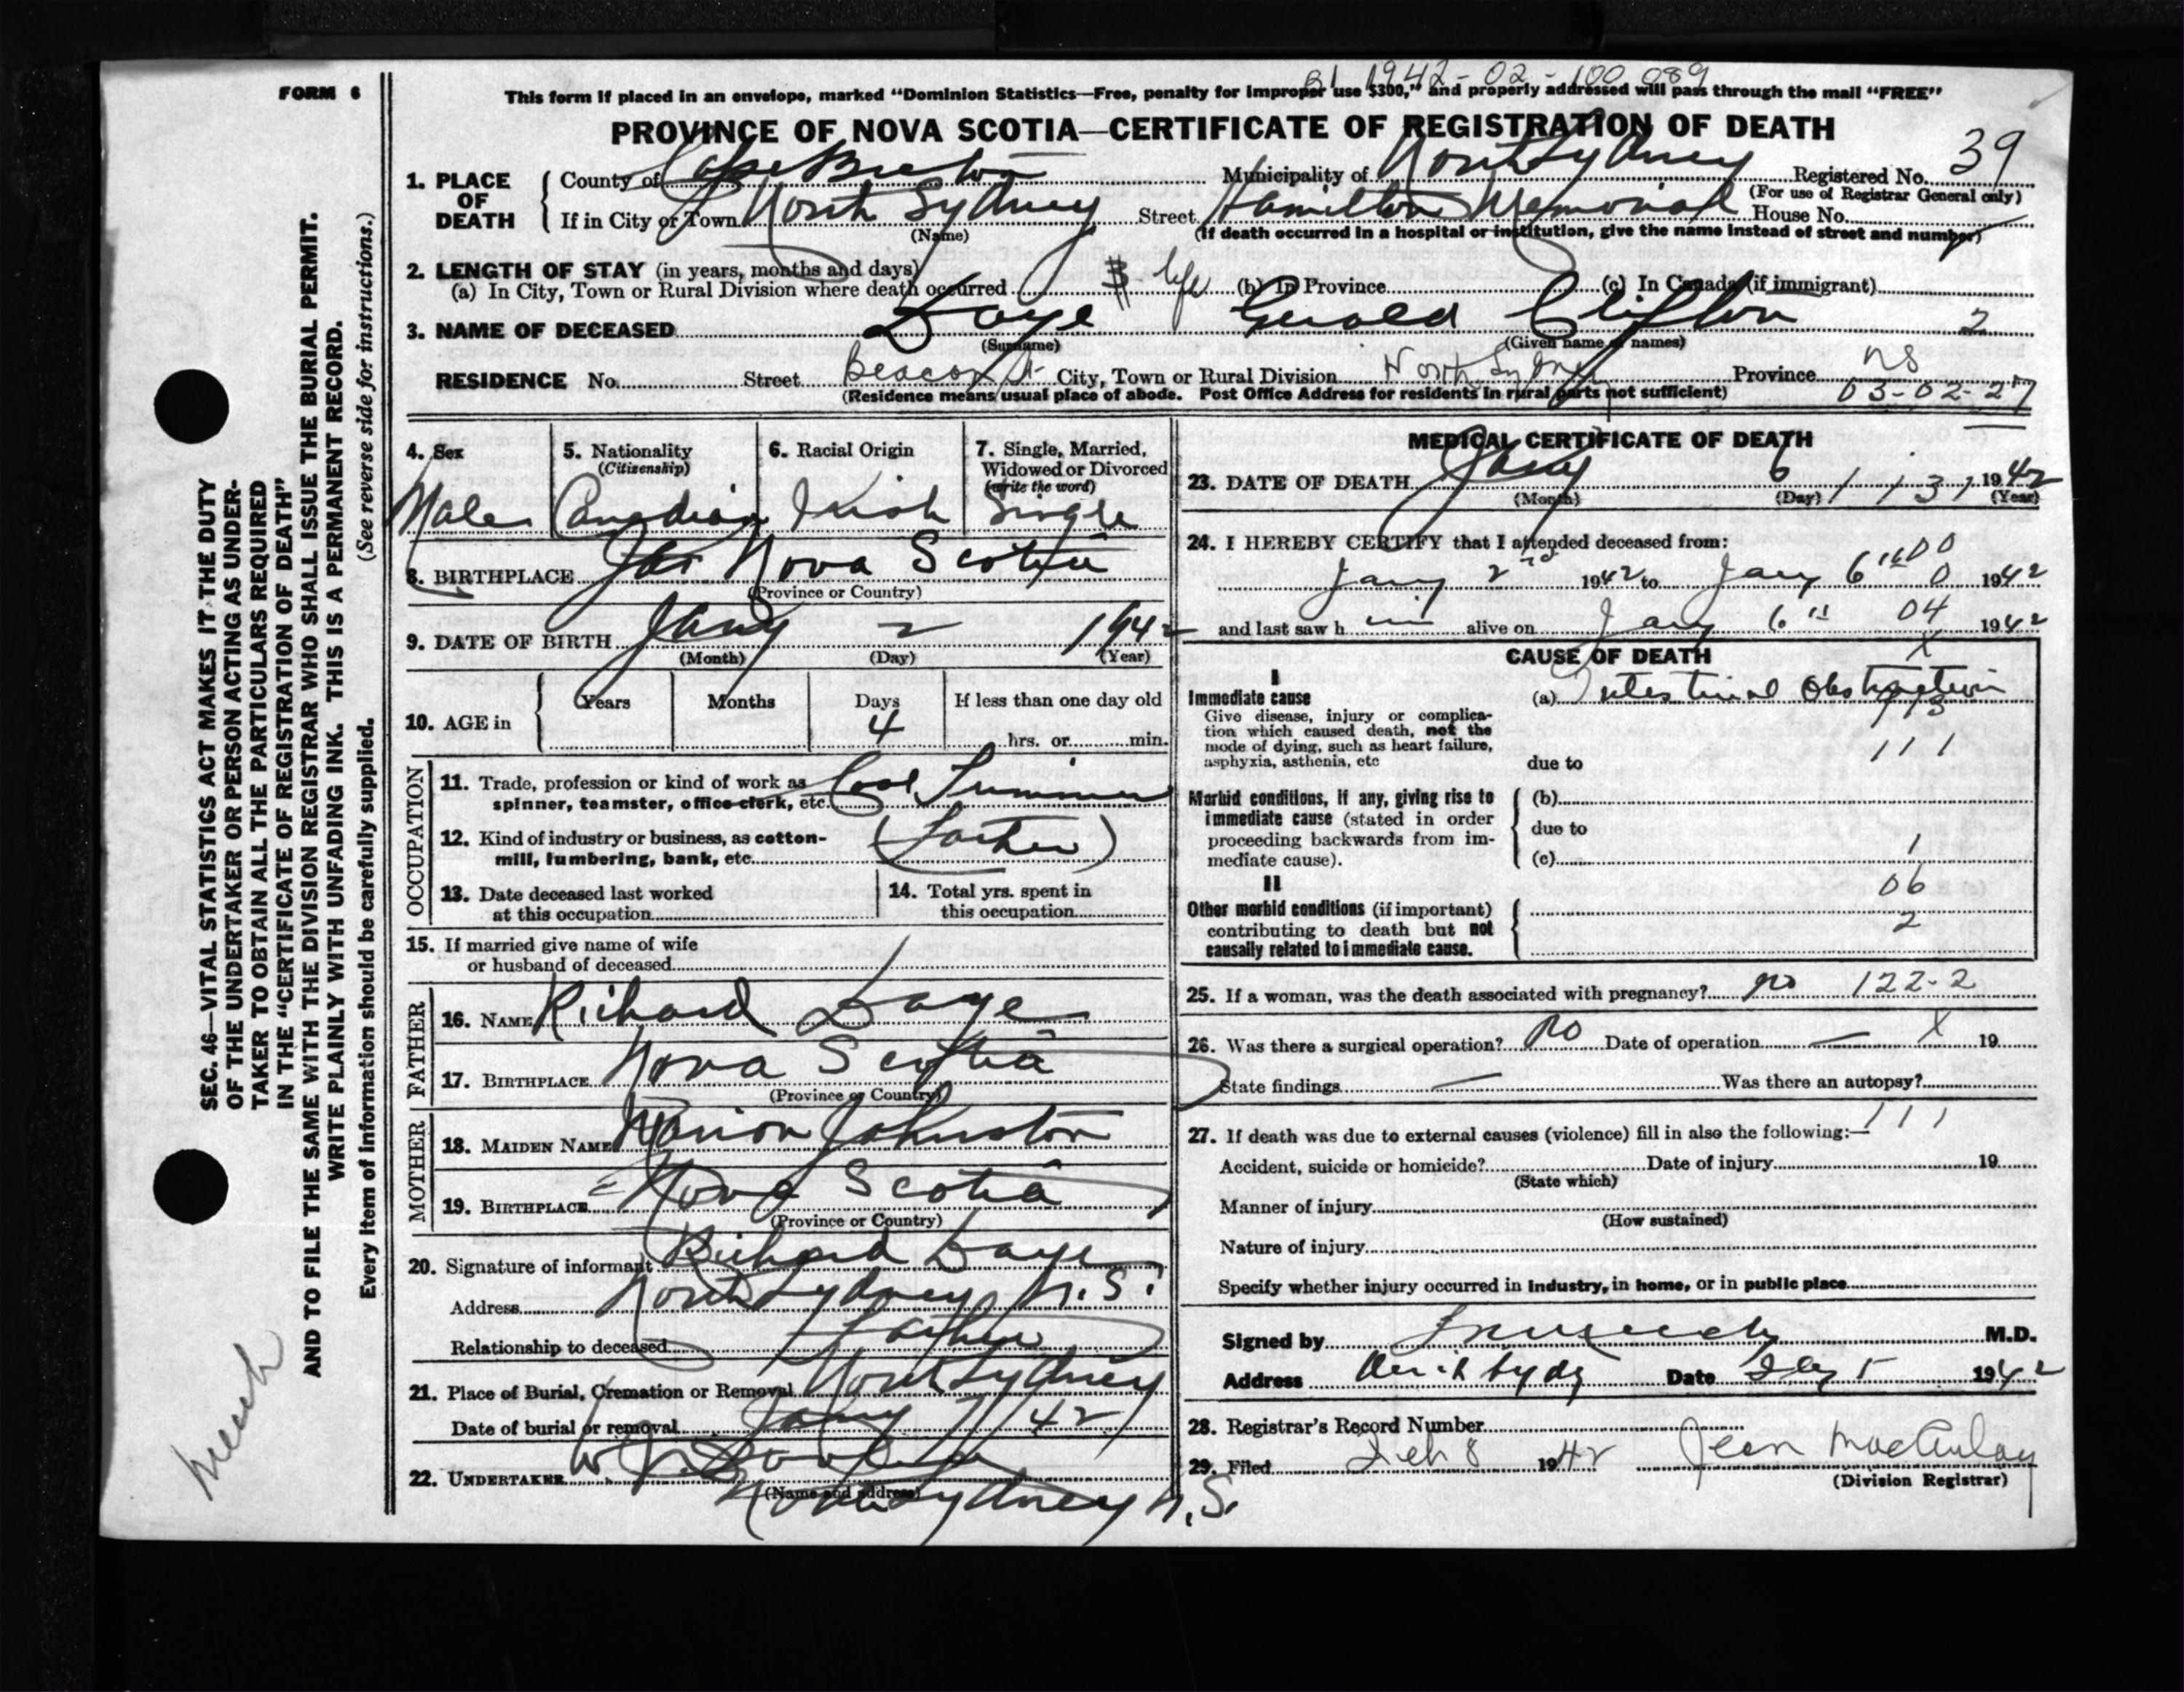 B1 1942-02-100 089
FORM 6
This form if placed in an envelope, marked "Dominion Statistics—Free, penalty for improper use $300," and properly addressed will pass through the mail "FREE"
PROVINCE OF NOVA SCOTIA—CERTIFICATE OF REGISTRATION OF DEATH
39
1. PLACE OF DEATH County of Cape Breton Municipality of North Sydney Registered No.
(For use of Registrar General only)
If in City or Town North Sydney Street Hamilton Memorial House No.
(Name) (If death occurred in a hospital or institution, give the name instead of street and number)
2. LENGTH OF STAY (in years, months and days)
(a) In City, Town or Rural Division where death occurred life (b) In Province (c) In Canada (if immigrant)
3. NAME OF DECEASED Gerald Clifton 2
(Surname) (Given name or names)
RESIDENCE No. Street Beacon St City, Town or Rural Division North Sydney Province NS
(Residence means usual place of abode. Post Office Address for residents in rural parts not sufficient) 03-02-27
4. Sex 5. Nationality 6. Racial Origin 7. Single, Married,
(Citizenship) Widowed or Divorced
(write the word)
Male Canadian Irish Single
8. BIRTHPLACE Nova Scotia
(Province or Country)
9. DATE OF BIRTH Jany 2 1942
(Month) (Day) (Year)
10. AGE in Years Months Days If less than one day old
4 hrs. or min.
OCCUPATION
11. Trade, profession or kind of work as
spinner, teamster, office clerk, etc. Coal Trimmer
12. Kind of industry or business, as cotton-
mill, lumbering, bank, etc. (Father)
13. Date deceased last worked 14. Total yrs. spent in
at this occupation this occupation
15. If married give name of wife
or husband of deceased
FATHER
16. NAME Richard
17. BIRTHPLACE Nova Scotia
(Province or Country)
MOTHER
18. MAIDEN NAME Marion Johnston
19. BIRTHPLACE Nova Scotia
(Province or Country)
20. Signature of informant Richard
Address North Sydney N.S.
Relationship to deceased Father
21. Place of Burial, Cremation or Removal North Sydney
Date of burial or removal Jany 7/42
22. UNDERTAKER
(Name and address)
North Sydney N.S.
MEDICAL CERTIFICATE OF DEATH
23. DATE OF DEATH Jany 6 1 131 1942
(Month) (Day) (Year)
24. I HEREBY CERTIFY that I attended deceased from:
00
Jany 2nd 1942 to Jany 6th 0 1942
and last saw h im alive on Jany 6th 04 1942
CAUSE OF DEATH X
I
Immediate cause (a) Intestinal Obstruction
Give disease, injury or complica-
tion which caused death, not the
mode of dying, such as heart failure,
asphyxia, asthenia, etc due to 111
Morbid conditions, if any, giving rise to (b)
immediate cause (stated in order due to
proceeding backwards from im-
mediate cause). (c) 1
II 06
Other morbid conditions (if important)
contributing to death but not 2
causally related to immediate cause.
25. If a woman, was the death associated with pregnancy? no 122-2
26. Was there a surgical operation? no Date of operation — X 19
State findings — Was there an autopsy?
111
27. If death was due to external causes (violence) fill in also the following:—
Accident, suicide or homicide? Date of injury 19
(State which)
Manner of injury
(How sustained)
Nature of injury
Specify whether injury occurred in industry, in home, or in public place
Signed by M.D.
Address Date 1942
28. Registrar's Record Number
29. Filed Feb 8 1942 Jean MacAulay
(Division Registrar)
SEC. 46—VITAL STATISTICS ACT MAKES IT THE DUTY
OF THE UNDERTAKER OR PERSON ACTING AS UNDER-
TAKER TO OBTAIN ALL THE PARTICULARS REQUIRED
IN THE "CERTIFICATE OF REGISTRATION OF DEATH"
AND TO FILE THE SAME WITH THE DIVISION REGISTRAR WHO SHALL ISSUE THE BURIAL PERMIT.
WRITE PLAINLY WITH UNFADING INK. THIS IS A PERMANENT RECORD.
Every item of information should be carefully supplied. (See reverse side for instructions.)